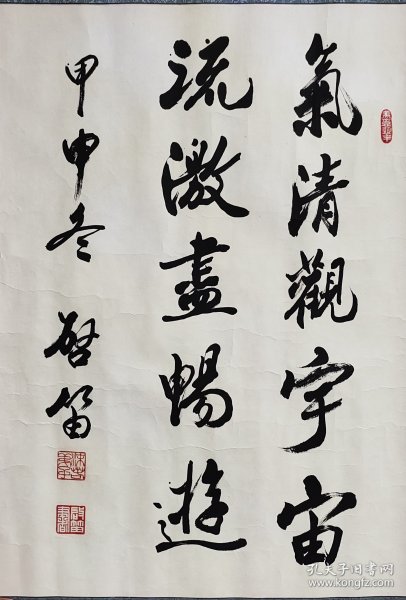 氣清觀宇宙
流激盡暢遊
甲申冬
啓笛
孔夫子旧书网